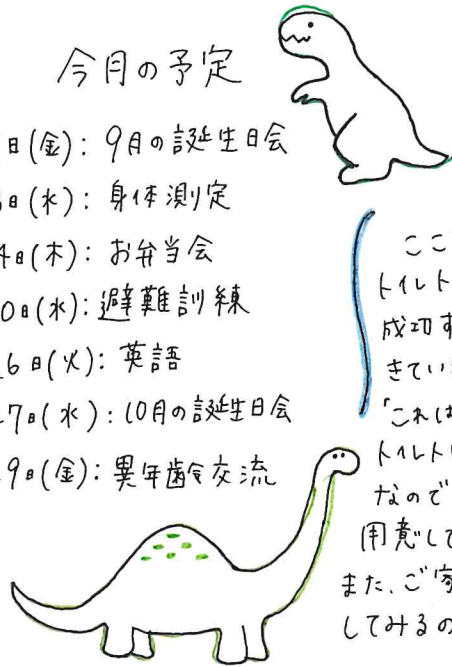 今月の予定
日(金): 9月の誕生日会
日(水): 身体測定
4日(木): お弁当会
0日(水): 避難訓練
6日(火): 英語
7日(水): 10月の誕生日会
9日(金): 異年齢交流
ここ
トイレト
成功す
きてい
「これは
トイレトレ
なので
用意して
また、ご家
してみるの